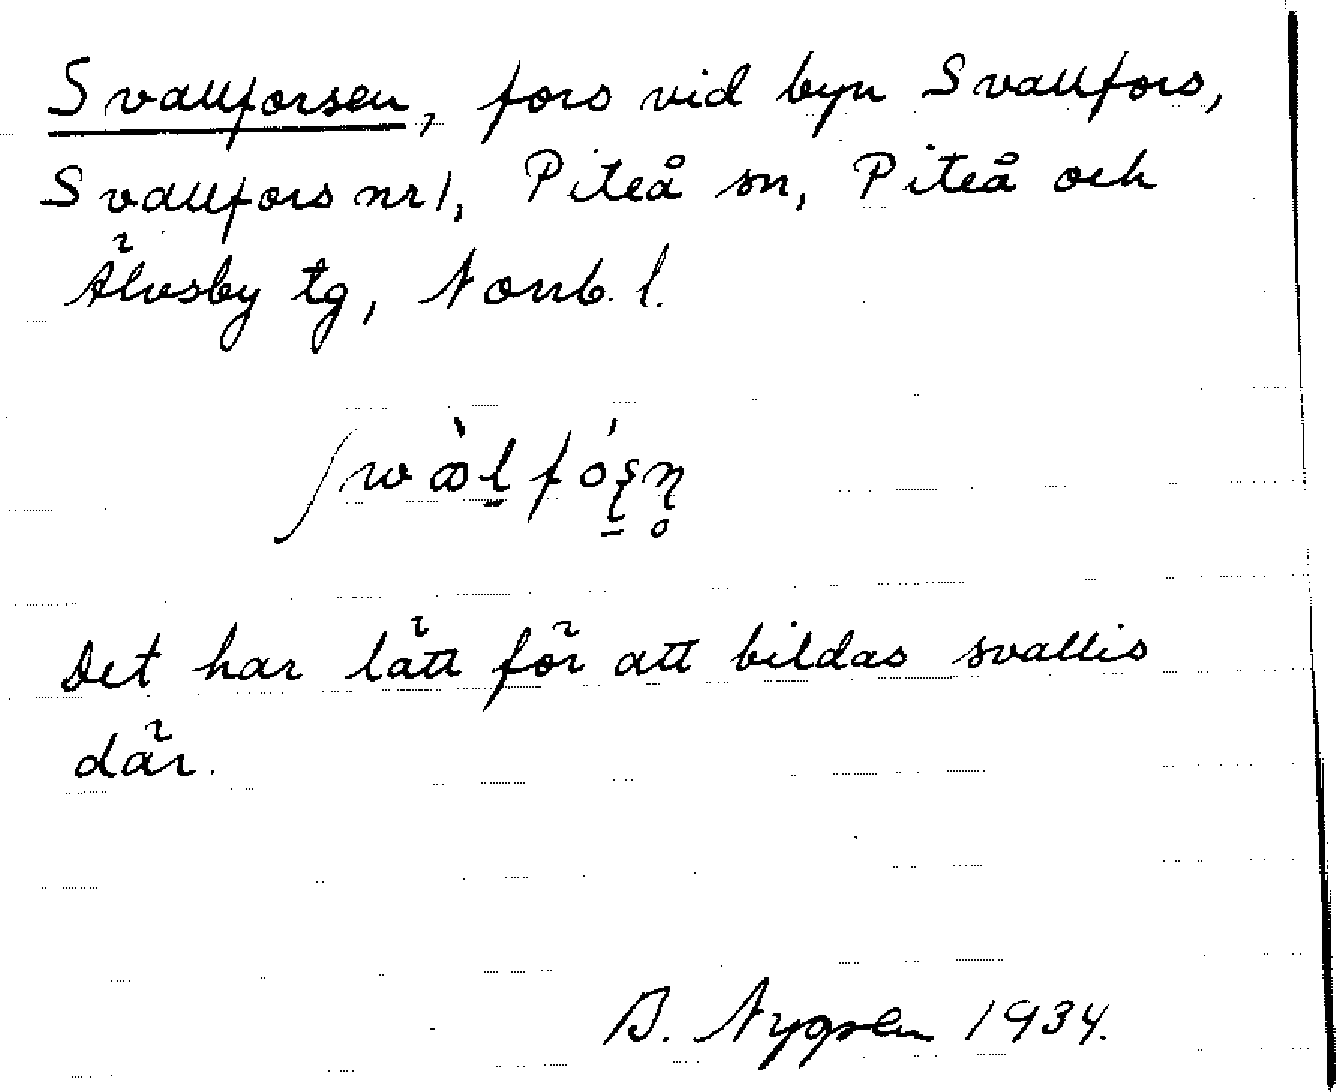 Svallforsen, fors vid byn Svallfors,
Svallfors nr 1, Piteå sn, Piteå och
Älvsby tg, Norrb. l.
Det har lätt för att bildas svallis
där.
1934.